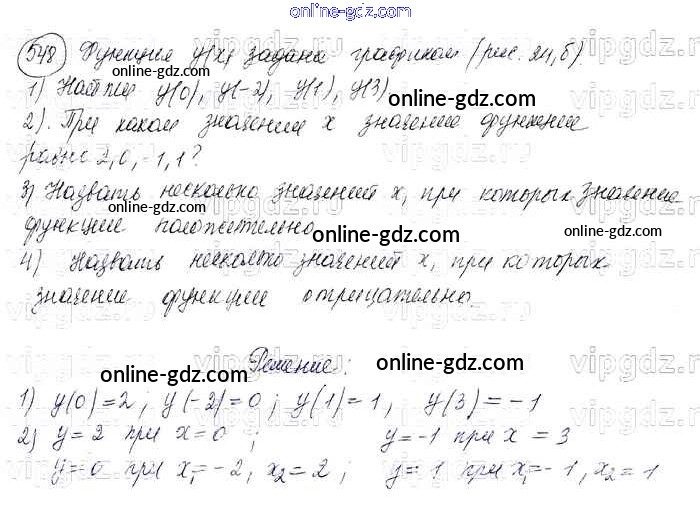 online-gdz.com
548 Функция y(x) задана графиком (рис. 24, б).
1) Найти y(0), y(-2), y(1), y(3)
online-gdz.com
online-gdz.com
2). При каком значении x значение функции
равно 2, 0, -1, 1?
online-gdz.com
3) Назвать несколько значений x, при которых значение
функции положительно
online-gdz.com
4) Назвать несколько значений x, при которых
значение функции отрицательны.
Решение:
online-gdz.com
online-gdz.com
1) y(0)=2; y(-2)=0; y(1)=1, y(3)=-1
2) y=2 при x=0; y=-1 при x=3
y=0 при x₁=-2, x₂=2; y=1 при x₁=-1, x₂=1